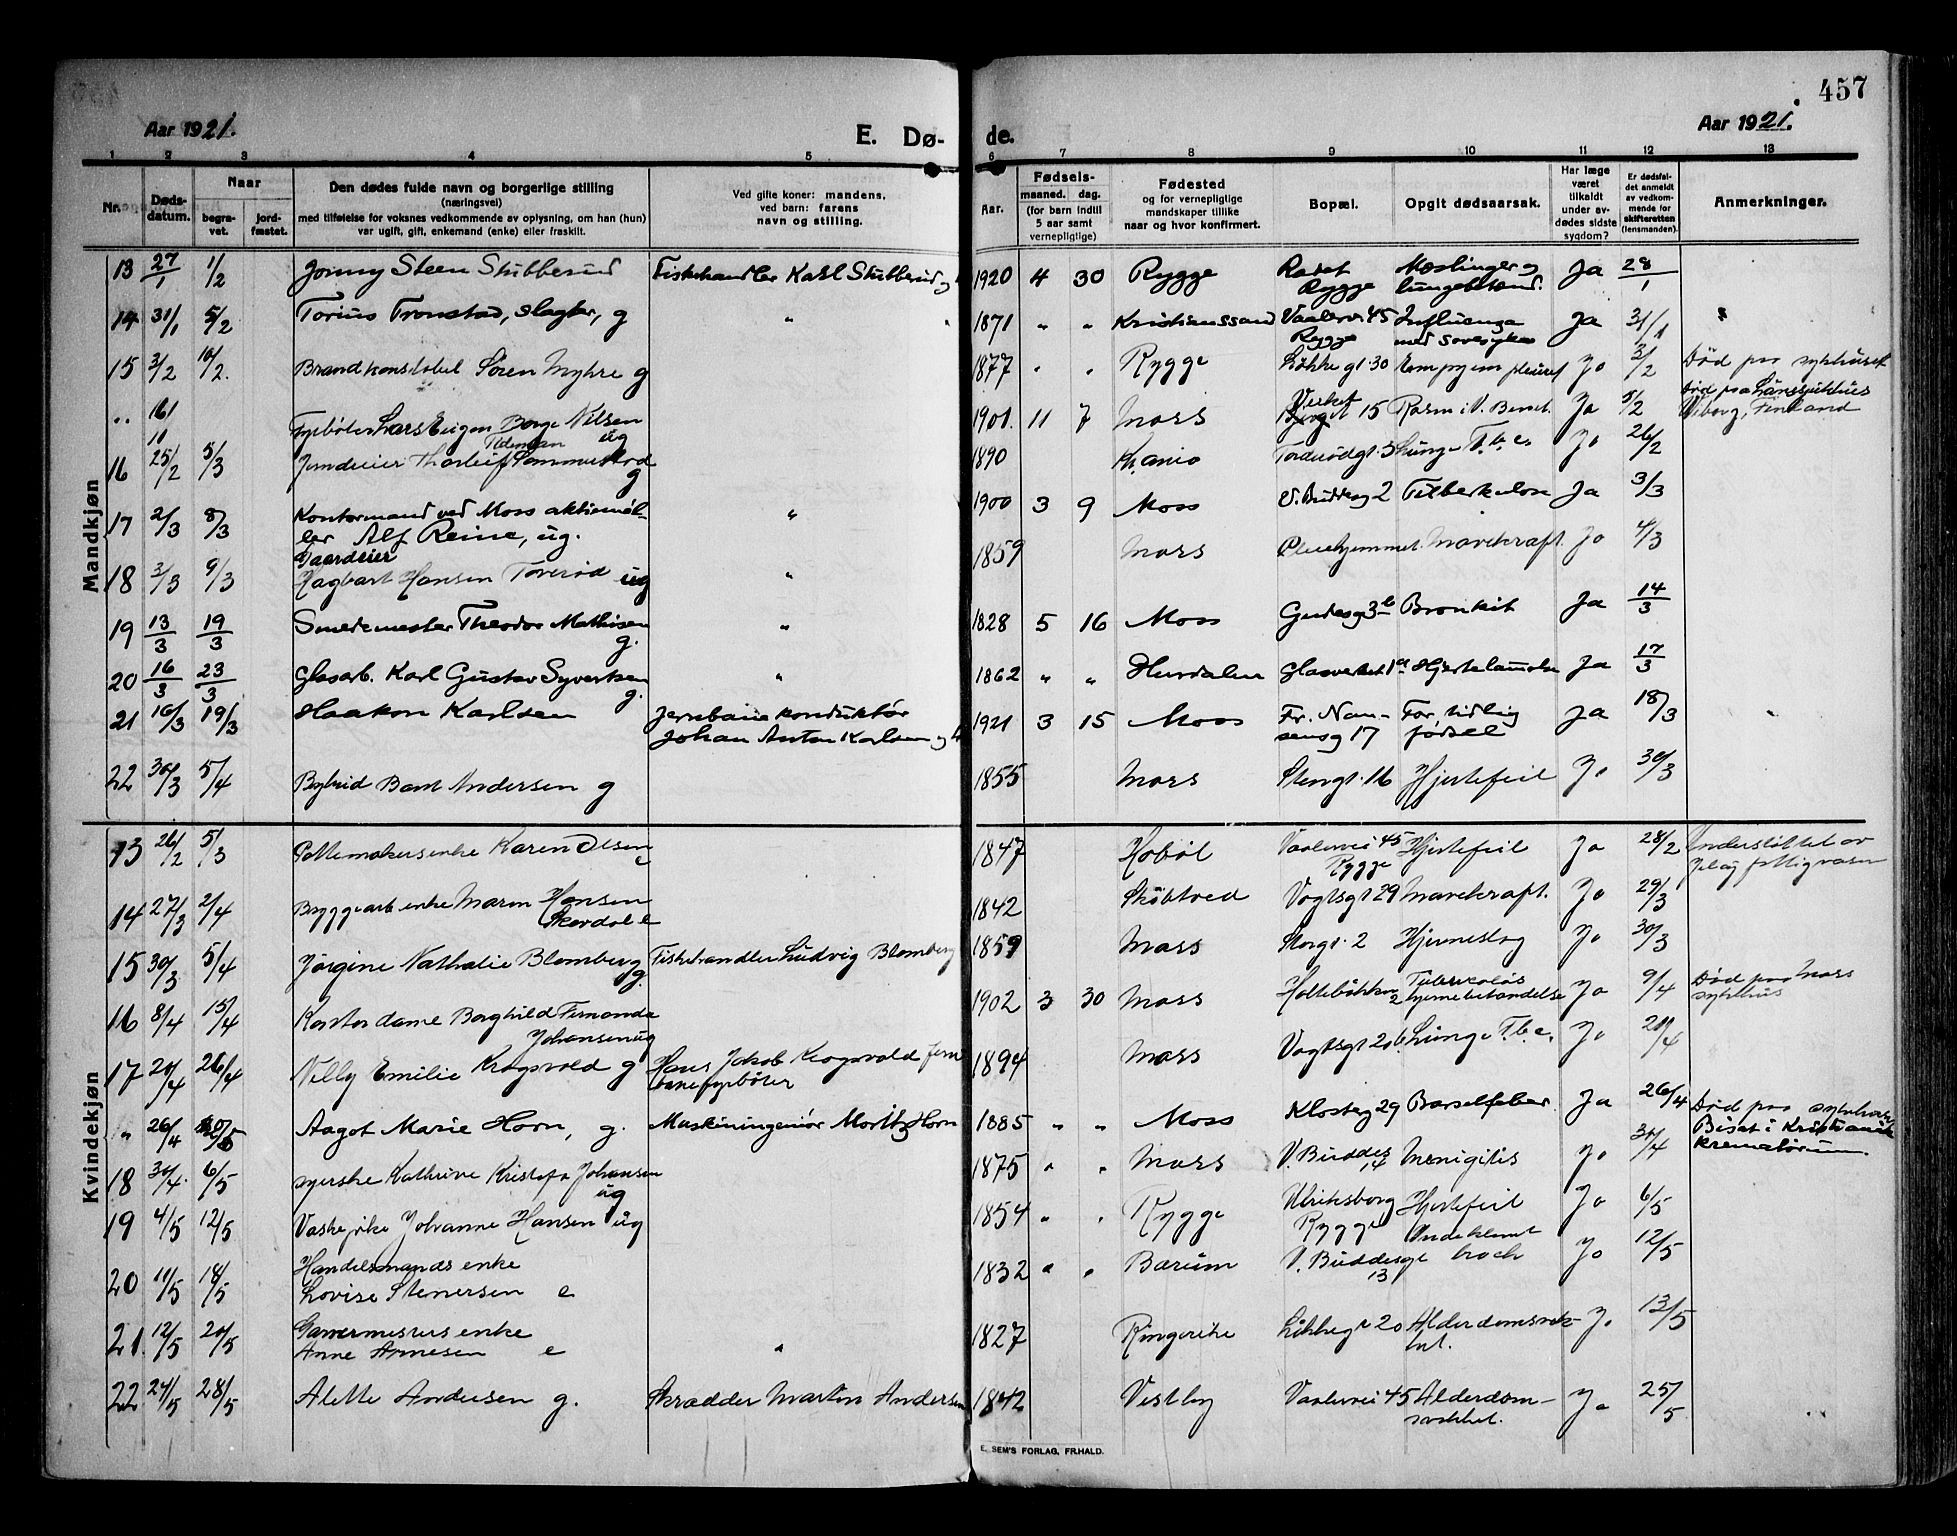 457
Aar 1921.
E. Dø-
de.
Aar 1921.
1 2 3 4 5 6 7 8 9 10 11 12 13
Nr.
Døds-
datum.
Naar
begra-
vet.
jord-
fæstet.
Den dødes fulde navn og borgerlige stilling
(næringsvei)
med tilføielse for voksnes vedkommende av oplysning, om han (hun)
var ugift, gift, enkemand (enke) eller fraskilt.
Ved gifte koner: mandens,
ved barn: farens
navn og stilling.
Aar.
Fødsels-
maaned. dag.
(for barn indtil
5 aar samt
vernepligtige)
Fødested
og for vernepligtige
mandskaper tillike
naar og hvor konfirmert.
Bopæl.
Opgit dødsaarsak.
Har læge
været
tilkaldt
under av-
dødes sidste
sygdom?
Er dødsfal-
det anmeldt
av vedkom-
mende for
skifteretten
(lensmanden).
Anmerkninger.
Mandkjøn
13 27/1 1/2 Jonny Steen Stubberud Fiskehandler Karl Stubberud og 1920 4 30 Rygge Rygge Mæslinger og Ja 28/1
lungebetænd.
14 31/1 5/2 Torius Tronstad, slagter, g " 1871 " " Kristianssand Vaalervei 45 Influenza Ja 31/1
Rygge med
15 3/2 10/2. Brandkonstabel Søren Myhre g 1877 " " Rygge Løkkegt. 30 Empyem Ja 3/2 Død paa sykehuset
Fyrbøter Lars Eugen Borge Nilsen ug 1901. 11 7 Moss Verket 15 Ja 5/2 Død paa Länssjukhus
Viborg, Finland
16 25/2 5/3 Thorleif g 1890 Kr.ania Lunge Tbc. Ja 26/2
17 2/3 8/3 Kontormand ved Moss aktiemøl- " 1900 3 9 Moss V. Buddesg 2 Tuberkulose Ja 3/3
ler Alf Reine, ug.
Gaardeier
18 3/3 9/3 Hagbart Hansen Toverød ug " 1859 Moss Pleiehjemmet. Mavekræft. Ja 4/3
19 13/3 19/3 Smedemester Theodor Mathisen g. " 1828 5 16 Moss Gudesg 3b Bronkit Ja 14/3
20 16/3 23/3 Glasarb. Karl Gustav Syvertsen g. " 1862 " " Hurdalen Glasverket 1a Hjertelammelse Ja 17/3
21 16/3 19/3 Haakon Karlsen Jernbanekonduktør 1921 3 15 Moss Fr. Nan- For tidlig Ja 18/3
Johan Anton Karlsen og sensg 17 fødsel
22 30/3 5/4 Bernt Andersen g 1855 Moss Stengt. 16 Hjertefeil Ja 30/3
Kvindekjøn
13 26/2 5/3 Pottemakerenke Karen Olsen e 1847 Hobøl Vaalervei 45 Hjertefeil Ja 28/2 Understøttet av
Rygge Jeløy fattigvæsen
14 27/3 2/4 Bryggearb enke Maren Hansen 1842 Skibtved Vogtsgt 29 Mavekræft. Ja 29/3
Skovdal e
15 30/3 5/4 Jørgine Nathalie Blomberg g. Fiskehandler Ludvig Blomberg 1859 Moss Storgt. 2 Hjerneslag Ja 30/3
16 8/4 13/4 Kontordame Borghild Fernanda 1902 3 30 Moss Tuberkuløs Ja 9/4 Død paa Moss
Johansen ug sykehus
17 20/4 26/4 Nelly Emilie Krogsvold g Hans Jakob Krogsvold jern 1894 Moss Vogtsgt 20b. Lunge Tbc. Ja 20/4
banefyrbøter
" 26/4 Aagot Marie Horn, g. Maskiningeniør Moritz Horn 1885 " " Moss Klosterg 29 Barselfeber Ja 26/4 Død paa sykehuset
Bisat i Kristiania
krematorium.
18 30/4. 6/5 syerske Kathrine Kristofa Johansen ug 1875 " " Moss V. Buddes 14 Menigitis Ja 30/4
19 4/5 12/5 Vaskepike Johanne Hansen ug 1854 " " Rygge Ulriksborg Hjertefeil Ja 6/5
Rygge
20 11/5 18/5 Handelsmands enke 1832 " " Bærum V. Buddesgt 13 Indeklemt brock Ja 12/5
Lovise Stenersen e
21. 12/5 20/5 Garvermesters enke " 1827 Ringerike Løkkegt 20 Alderdomsvæk- Ja 13/5
Anne Arnesen e ket.
22 24/5 28/5 Alette Andersen g. Skrædder Martin Andersen 1842 Vestby Vaalervei 45 Alderdom- Ja 25/5
svækket.
E. SEM'S FORLAG, FR.HALD.